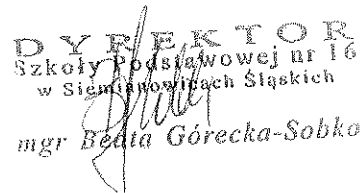 DYREKTOR
Szkoły Podstawowej nr 16
w Siemianowicach Śląskich
mgr Beata Górecka-Sobko